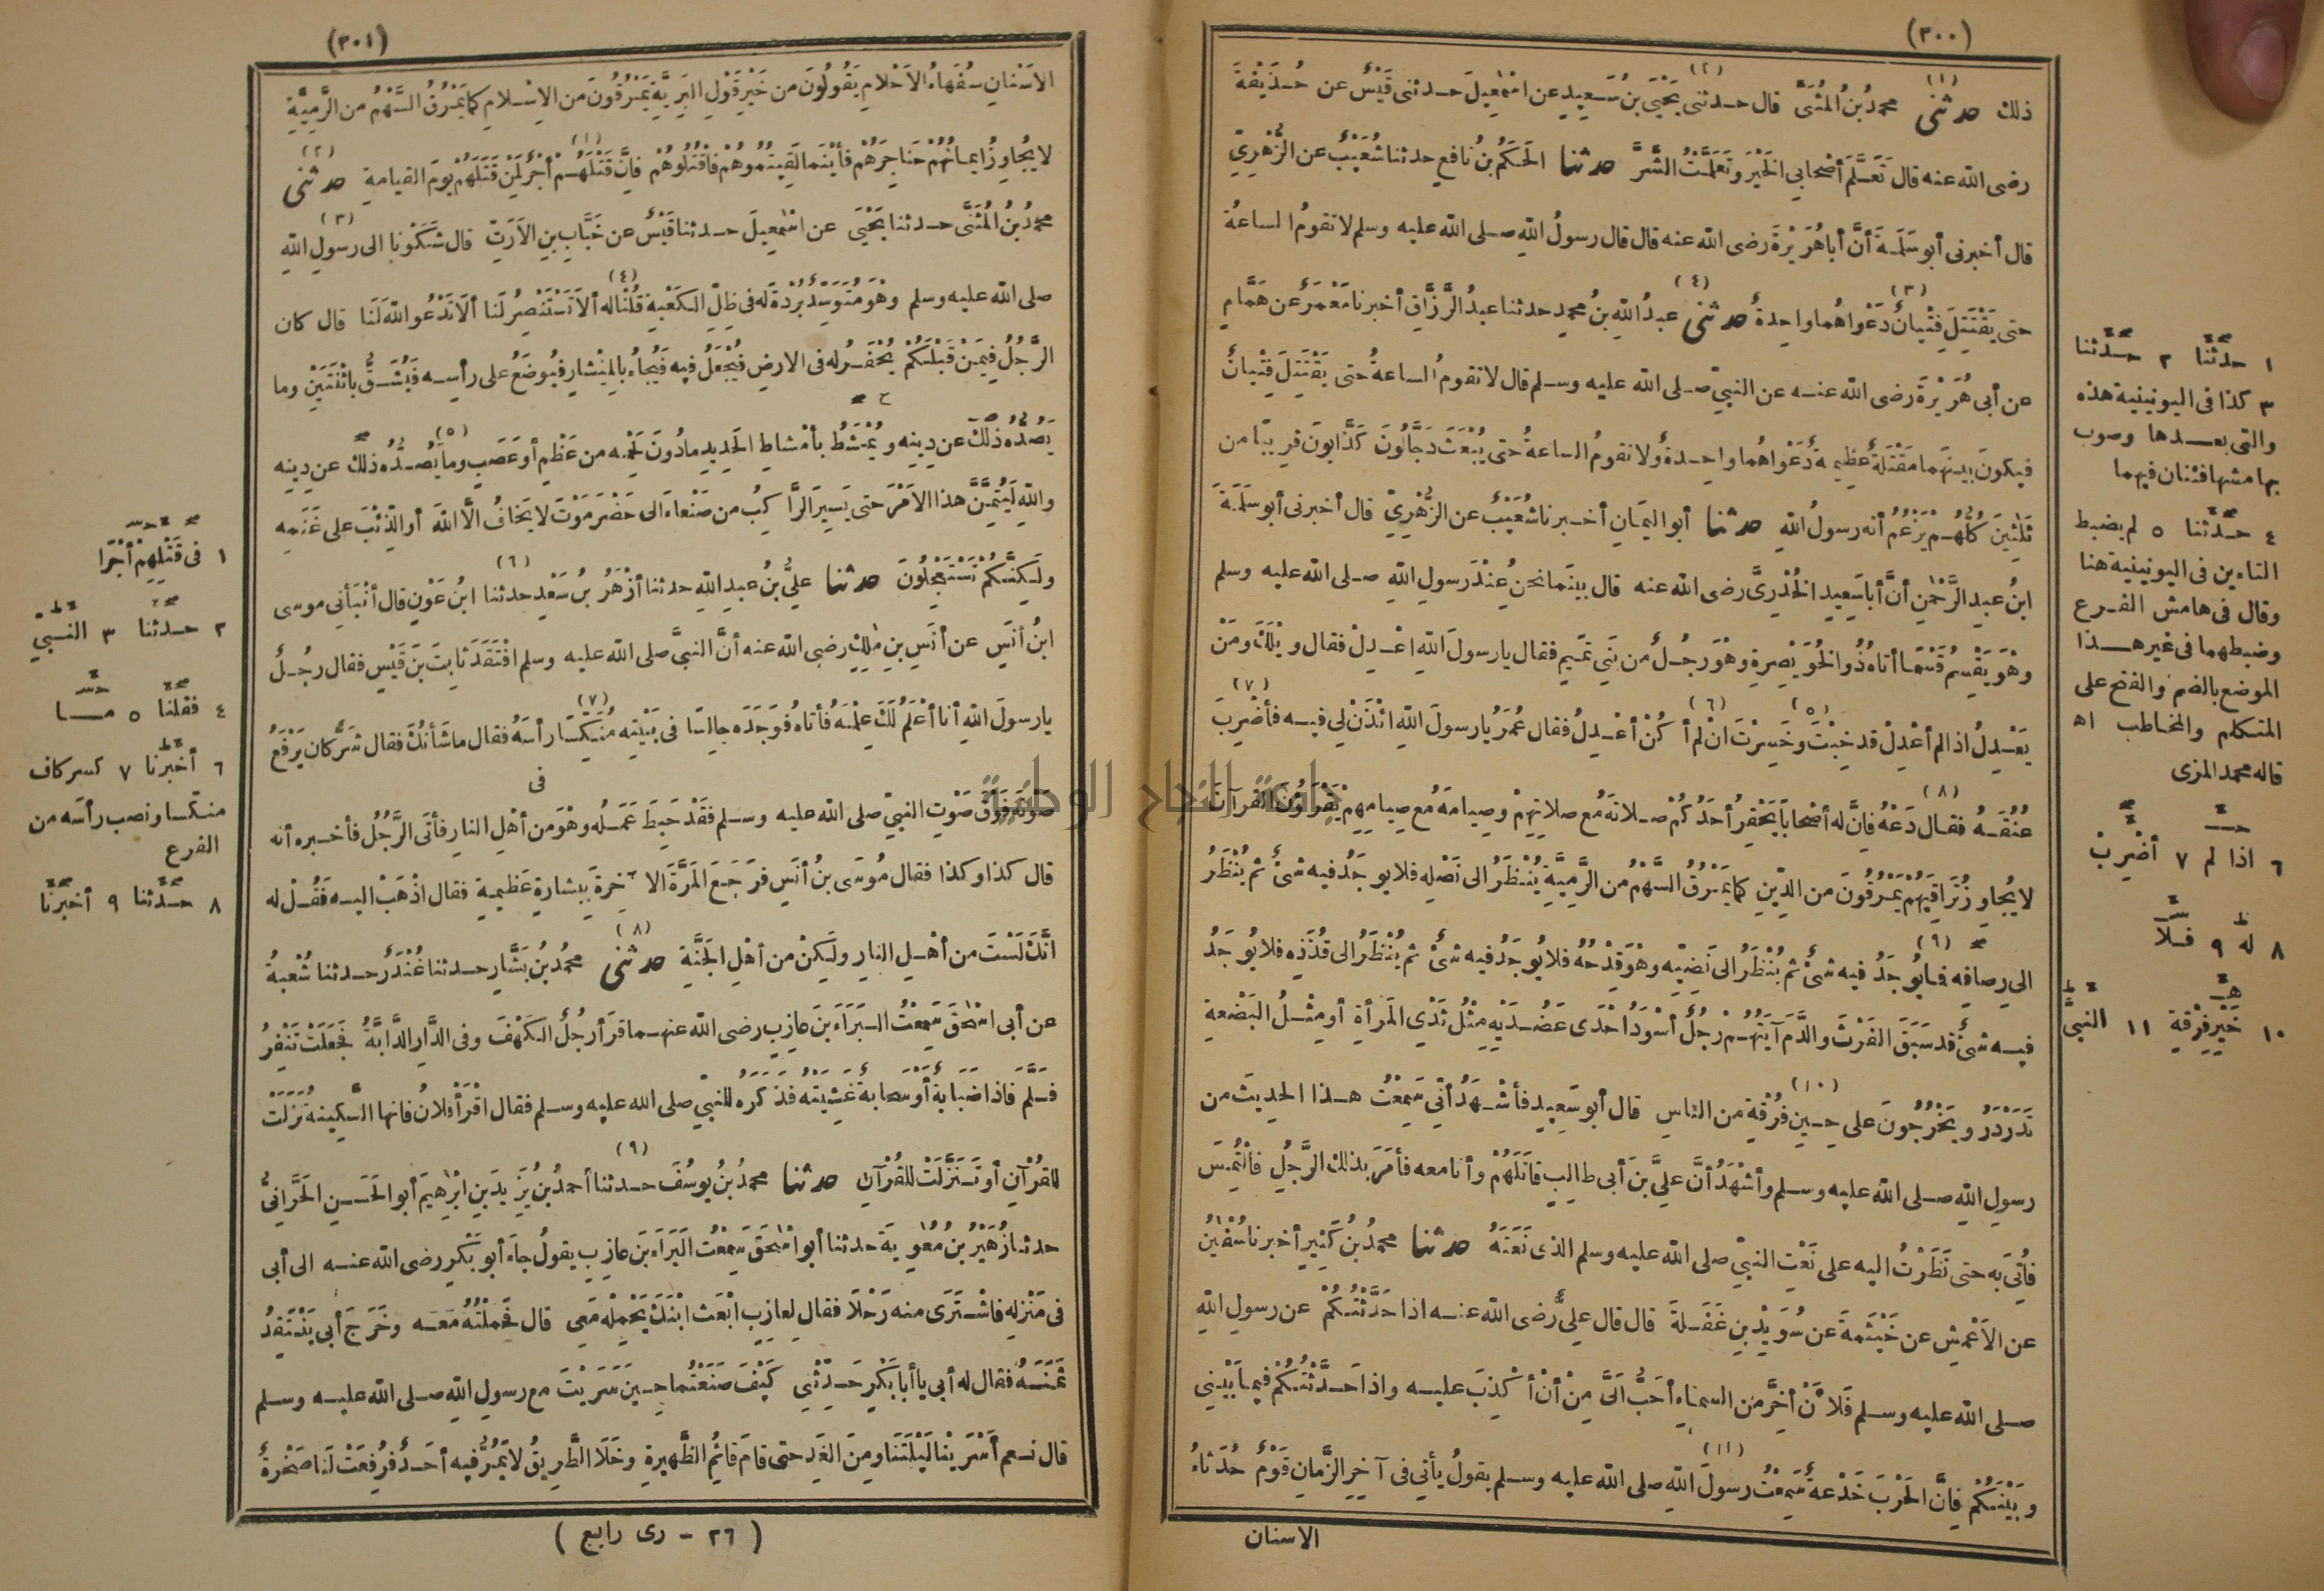 (٣٠٠)
ذلك حدثني محمدُ بنُ المُثَنَّى قال حدثني يَحْيَى بن سَعيدٍ عن اسْمٰعِيلَ حدثنى قَيْسٌ عن حُذَيْفَةَ
رضى الله عنه قال تَعَلَّمَ أصْحابِي الخَيْرَ وتَعَلَّمْتُ الشَّرَّ حدثنا الحَكَمُ بنُ نافعٍ حدثنا شُعَيْبٌ عن الزُّهْرِيِّ
قال أخبرنى أبو سَلَمَةَ أنَّ أبا هُرَيْرَةَ رضى الله عنه قال قال رسولُ اللهِ صلى الله عليه وسلم لا تقومُ الساعةُ
حتى يَقْتَتِلَ فِتْيانٌ دَعْواهُما واحِدةٌ حدثنى عبدُ اللهِ بنُ محمدٍ حدثنا عبدُ الرَّزَّاقِ أخبرنا مَعْمَرٌ عن هَمَّامٍ
عن أبى هُرَيْرَةَ رضى الله عنه عن النبيِّ صلى الله عليه وسلم قال لا تقومُ الساعةُ حتى يَقْتَتِلَ فِتْيانٌ
فيكونَ بينَهما مَقْتَلَةٌ عظيمةٌ دَعْواهُما واحدةٌ ولا تقومُ الساعةُ حتى يُبْعَثَ دَجَّالُونَ كَذَّابونَ قَرِيبًا من
ثَلٰثِينَ كُلُّهُمْ يَزْعُمُ أنه رسولُ اللهِ حدثنا أبو اليَمانِ أخبرنا شُعَيْبٌ عن الزُّهْرِيِّ قال أخبرنى أبو سَلَمَةَ
ابنُ عبدِ الرَّحْمٰنِ أنَّ أبا سَعِيدٍ الخُدْرِيَّ رضى الله عنه قال بينَما نحنُ عِنْدَ رسولِ اللهِ صلى الله عليه وسلم
وهْوَ يَقْسِمُ قَسْمًا أتاهُ ذُو الخُوَيْصِرَةِ وهْوَ رجُلٌ من بَنِي تَمِيمٍ فقال يا رسولَ اللهِ اعْدِلْ فقال ويْلَكَ ومَنْ
يَعْدِلُ اذا لم أعْدِلْ قد خِبْتَ وخَسِرْتَ انْ لم أكُنْ أعْدِلُ فقال عُمَرُ يا رسولَ اللهِ ائْذَنْ لِي فيه فأضْرِبَ
عُنُقَهُ فقال دَعْهُ فانَّ له أصْحابًا يَحْقِرُ أحَدُكُمْ صلاتَهُ مع صلاتِهِمْ وصِيامَهُ مع صِيامِهِمْ يَقْرَؤُنَ القُرآنَ
لا يُجاوِزُ تَراقِيَهُمْ يَمْرُقُونَ من الدِّينِ كما يَمْرُقُ السَّهْمُ من الرَّمِيَّةِ يُنْظَرُ الى نَصْلِهِ فلا يوجَدُ فيه شىْءٌ ثم يُنْظَرُ
الى رِصافِهِ فما يُوجَدُ فيه شىْءٌ ثم يُنْظَرُ الى نَضِيِّهِ وهْوَ قِدْحُهُ فلا يُوجَدُ فيه شىْءٌ ثم يُنْظَرُ الى قُذَذِهِ فلا يُوجَدُ
فيه شىْءٌ قد سَبَقَ الفَرْثَ والدَّمَ آيَتُهُمْ رجُلٌ أسْوَدُ احْدَى عَضُدَيْهِ مِثْلُ ثَدْىِ المَرأةِ أو مِثْلُ البَضْعةِ
تَدَرْدَرُ ويَخْرُجُونَ على حِينِ فُرْقَةٍ من الناسِ قال أبو سَعِيدٍ فأشْهَدُ أنِّي سَمِعْتُ هذا الحديثَ من
رسولِ اللهِ صلى الله عليه وسلم وأشْهَدُ أنَّ عليَّ بنَ أبى طالبٍ قاتَلَهُمْ وأنا معه فأمَرَ بذلك الرَّجُلِ فالْتُمِسَ
فأُتِىَ به حتى نَظَرْتُ اليه على نَعْتِ النبيِّ صلى الله عليه وسلم الذى نَعَتَهُ حدثنا محمدُ بنُ كَثِيرٍ أخبرنا سُفْيٰنُ
عن الاَعْمَشِ عن خَيْثَمةَ عن سُوَيْدِ بنِ غَفَلةَ قال قال عليٌّ رضى الله عنه اذا حَدَّثْتُكُمْ عن رسولِ اللهِ
صلى الله عليه وسلم فَلاَنْ أخِرَّ من السماءِ أحَبُّ الَىَّ مِنْ أنْ أكْذِبَ عليه واذا حَدَّثْتُكُمْ فيما بَيْنِي
وبَيْنَكُمْ فانَّ الحَرْبَ خَدْعةٌ سَمِعْتُ رسولَ اللهِ صلى الله عليه وسلم يقولُ يأتى فى آخِرِ الزَّمانِ قَوْمٌ حُدَثاءُ
الاسنان
١ حدثنا ٢ حدثنا
٣ كذا فى اليونينية هذه
والتى بعدها وصوب
بهامشها فئتان فيهما
٤ حدثنا ٥ لم يضبط
التاءين فى اليونينية هنا
وقال فى هامش الفرع
وضبطهما فى غير هذا
الموضع بالضم والفتح على
المتكلم والمخاطب اه
قاله محمد المزى
٦ اذا لم ٧ أضْرِبْ
٨ له ٩ فلا
١٠ خَيْرِ فِرْقةٍ ١١ النبيَّ
(٣٠١)
الاَسْنانِ سُفَهاءُ الاَحْلامِ يَقُولُونَ من خَيْرِ قَوْلِ البَرِيَّةِ يَمْرُقُونَ من الاِسْلامِ كما يَمْرُقُ السَّهْمُ من الرَّمِيَّةِ
لا يُجاوِزُ ايمانُهُمْ حَناجِرَهُمْ فأيْنَما لَقِيتُمُوهُمْ فاقْتُلُوهُمْ فانَّ قَتْلَهُمْ أجْرٌ لِمَنْ قَتَلَهُمْ يومَ القيامةِ حدثنى
محمدُ بنُ المُثَنَّى حدثنا يَحْيَى عن اسْمٰعِيلَ حدثنا قَيْسٌ عن خَبَّابِ بنِ الاَرَتِّ قال شَكَوْنا الى رسولِ اللهِ
صلى الله عليه وسلم وهْوَ مُتَوَسِّدٌ بُرْدةً له فى ظِلِّ الكَعْبةِ قُلْنا له ألاَ تَسْتَنْصِرُ لَنا ألاَ تَدْعُو اللهَ لَنا قال كان
الرَّجُلُ فِيمَنْ قَبْلَكُمْ يُحْفَرُ له فى الارضِ فيُجْعَلُ فيه فيُجاءُ بالمِنْشارِ فيُوضَعُ على رأسِه فيُشَقُّ باثْنَتَيْنِ وما
يَصُدُّهُ ذلك عن دِينِه ويُمْشَطُ بأمْشاطِ الحَدِيدِ مادُونَ لَحْمِه من عَظْمٍ أو عَصَبٍ وما يَصُدُّه ذلك عن دِينِه
واللهِ لَيُتِمَّنَّ هذا الاَمْرَ حتى يَسِيرَ الرَّاكِبُ من صَنْعاءَ الى حَضْرَمَوْتَ لا يَخافُ الَّا اللهَ أو الذِّئْبَ على غَنَمِه
ولَكِنَّكُمْ تَسْتَعْجِلُونَ حدثنا عليُّ بنُ عبدِ اللهِ حدثنا أزْهَرُ بنُ سَعْدٍ حدثنا ابنُ عَوْنٍ قال أنْبَأنِى موسى
ابنُ أنَسٍ عن أنَسِ بنِ مٰلِكٍ رضى الله عنه أنَّ النبيَّ صلى الله عليه وسلم افْتَقَدَ ثابِتَ بنَ قَيْسٍ فقال رجُلٌ
يا رسولَ اللهِ أنا أعْلَمُ لَكَ عِلْمَهُ فأتاهُ فوَجَدَهُ جالِسًا فى بَيْتِهِ مُنَكِّسًا رأسَهُ فقال ما شَأنُكَ فقال شَرٌّ كان يَرْفَعُ
فى
صَوْتَهُ فَوْقَ صَوْتِ النبيِّ صلى الله عليه وسلم فَقَدْ حَبِطَ عَمَلُه وهْوَ من أهْلِ النارِ فأتَى الرَّجُلُ فأخبره أنه
قال كذا وكذا فقال مُوسَى بنُ أنَسٍ فرَجَعَ المَرَّةَ الآخِرةَ ببِشارةٍ عَظيمةٍ فقال اذْهَبْ اليه فَقُلْ له
انَّكَ لَسْتَ من أهْلِ النارِ ولَكِنْ من أهْلِ الجَنَّةِ حدثنى محمدُ بنُ بَشَّارٍ حدثنا غُنْدَرٌ حدثنا شُعْبةُ
عن أبى اسْحٰقَ سَمِعْتُ البَرَاءَ بنَ عازِبٍ رضى الله عنهما قَرَأ رجُلٌ الكَهْفَ وفى الدَّارِ الدَّابَّةُ فجَعَلَتْ تَنْفِرُ
فسَلَّمَ فاذا ضَبَابةٌ أوْ سَحابةٌ غَشِيَتْهُ فذَكَرَهُ للنبيِّ صلى الله عليه وسلم فقال اقْرَأْ فلانُ فانها السَّكِينةُ نَزَلَتْ
للقُرْآنِ أو تَنَزَّلَتْ للقُرْآنِ حدثنا محمدُ بنُ يوسُفَ حدثنا أحمدُ بنُ يَزِيدَ بنِ ابْرٰهِيمَ أبو الحَسَنِ الحَرَّانِيُّ
حدثنا زُهَيْرُ بنُ مُعٰوِيةَ حدثنا أبو اسْحٰقَ سَمِعْتُ البَرَاءَ بنَ عازِبٍ يقولُ جاءَ أبو بَكْرٍ رضى الله عنه الى أبى
فى مَنْزِلِه فاشْتَرَى منه رَحْلاً فقال لِعازِبٍ ابْعَثِ ابْنَكَ يَحْمِلْهُ مَعِى قال فحَمَلْتُهُ مَعَه وخَرَجَ أبى يَنْتَقِدُ
ثَمَنَهُ فقال له أبى يا أبا بَكْرٍ حَدِّثْنِي كَيْفَ صَنَعْتُما حِينَ سَرَيْتَ مع رسولِ اللهِ صلى الله عليه وسلم
قال نعم أَسْرَيْنا لَيْلَتَنا ومِنَ الغَدِ حتى قامَ قائِمُ الظَّهِيرةِ وخَلَا الطَّرِيقُ لا يَمُرُّ فيه أحَدٌ فرُفِعَتْ لَنا صَخْرةٌ
(٢٦ - رى رابع)
١ فى قَتْلِهِمْ أجْرًا
٢ حدثنا ٣ النبيِّ
٤ فقلنا ٥ ما
٦ أخبرنا ٧ كسر كاف
منكّسا ونصب رأسَه من
الفرع
٨ حدثنا ٩ أخبرنا
جامعة النجاح الوطنية